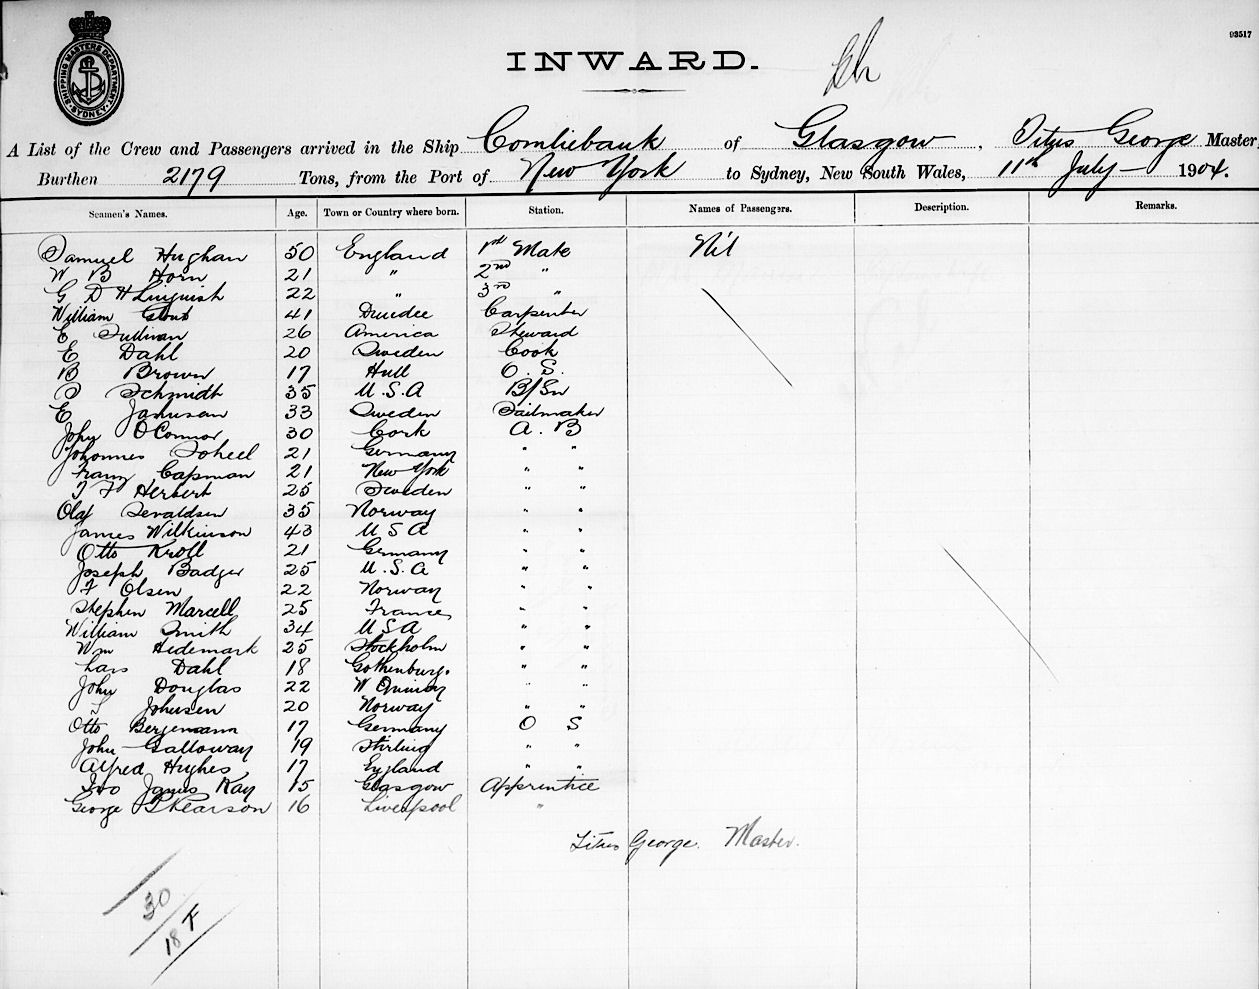 93517
SHIPPING MASTERS DEPARTMENT. SYDNEY.
INWARD.
A List of the Crew and Passengers arrived in the Ship Comliebank of Glasgow, Titus George Master,
Burthen 2179 Tons, from the Port of New York to Sydney, New South Wales, 11th July 1904.
Seamen's Names. Age. Town or Country where born. Station. Names of Passengers. Description. Remarks.
Samuel Hughan 50 England 1st Mate Nil
W B Horn 21 " 2nd "
G D H 22 " 3rd "
William 41 Dundee Carpenter
E Sullivan 26 America Steward
E Dahl 20 Sweden Cook
B Brown 17 Hull O. S.
Schmidt 35 U.S.A B/Sn
E 33 Sweden Sailmaker
John O'Connor 30 Cork A. B
Johannes 21 Germany " "
Franz Capman 21 New York " "
Herbert 25 Sweden " "
Olaf 35 Norway " "
James Wilkinson 43 U S A " "
Otto Kroll 21 Germany " "
Joseph Badger 25 U.S.A " "
F Olsen 22 Norway " "
Stephen Marcell 25 France " "
William Smith 34 U S A " "
Wm Hedemark 25 Stockholm " "
Lars Dahl 18 Gothenburg. " "
John Douglas 22 W " "
Johnsen 20 Norway " "
Otto Bergemann 17 Germany O S
John Galloway 19 Stirling " "
Alfred Hughes 17 England " "
Ivo James Kay 15 Glasgow Apprentice
George 16 Liverpool "
Titus George. Master.
30
18 F